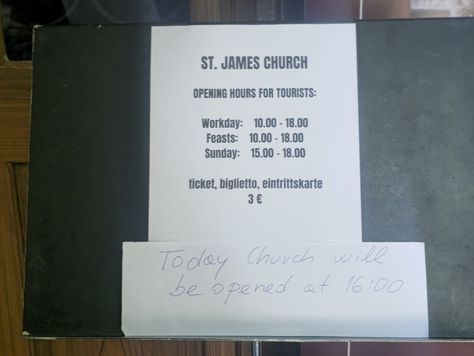 ST. JAMES CHURCH
OPENING HOURS FOR TOURISTS:
Workday: 10.00 - 18.00
Feasts: 10.00 - 18.00
Sunday: 15.00 - 18.00
ticket, biglietto, eintrittskarte
3 €
Today Church will
be opened at 16:00